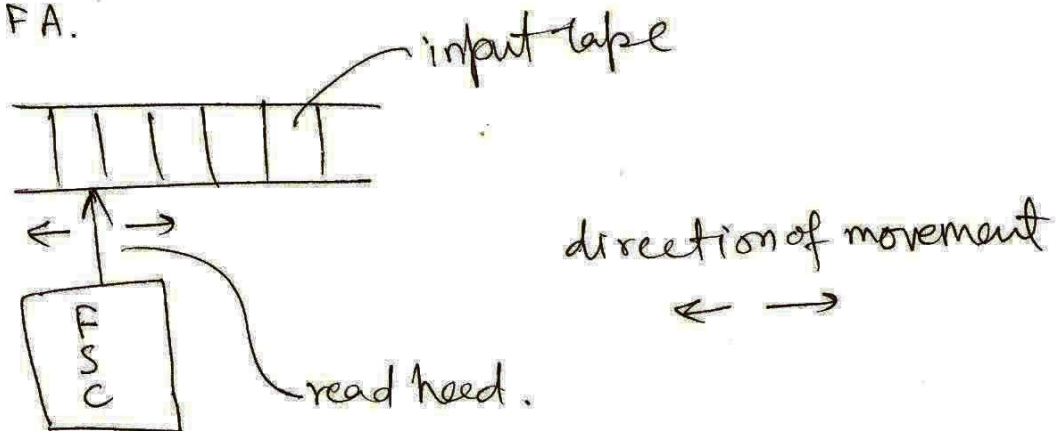 FA.
input tape
direction of movement
← →
← →
F
S
C
read head.